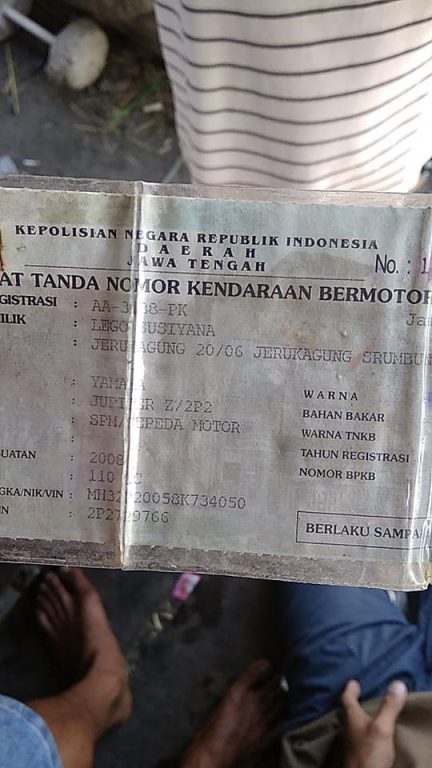 KEPOLISIAN NEGARA REPUBLIK INDONESIA
DAERAH
JAWA TENGAH
No. : 1
AT TANDA NOMOR KENDARAAN BERMOTOR
GISTRASI : AA-3 38-PK
ILIK : LEGO SUSIYANA
: JERUKAGUNG 20/06 JERUKAGUNG SRUMBU
: YAMAHA
: JUPITER Z/2P2
: SPM/SEPEDA MOTOR
:
UATAN : 2008
: 110
GKA/NIK/VIN :
IN :
WARNA
BAHAN BAKAR
WARNA TNKB
TAHUN REGISTRASI
NOMOR BPKB
BERLAKU SAMPA